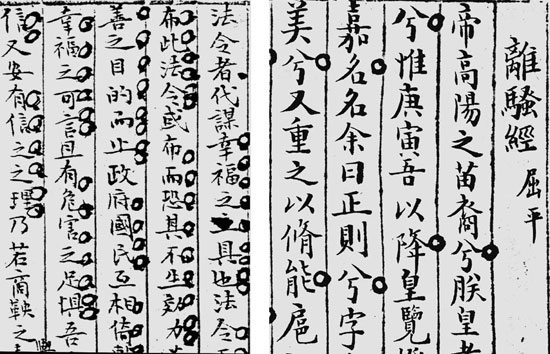 離騷經 屈平
帝高陽之苗裔兮朕皇考
兮惟庚寅吾以降皇覽
嘉名名余曰正則兮字
美兮又重之以脩能扈
法令者代謀幸福之具也法令
布此法令或布而恐其不生效力
善之目的而止政府國民互相倚
幸福之可言且有危害之足惧吾
信又安有信之之理乃若商鞅之